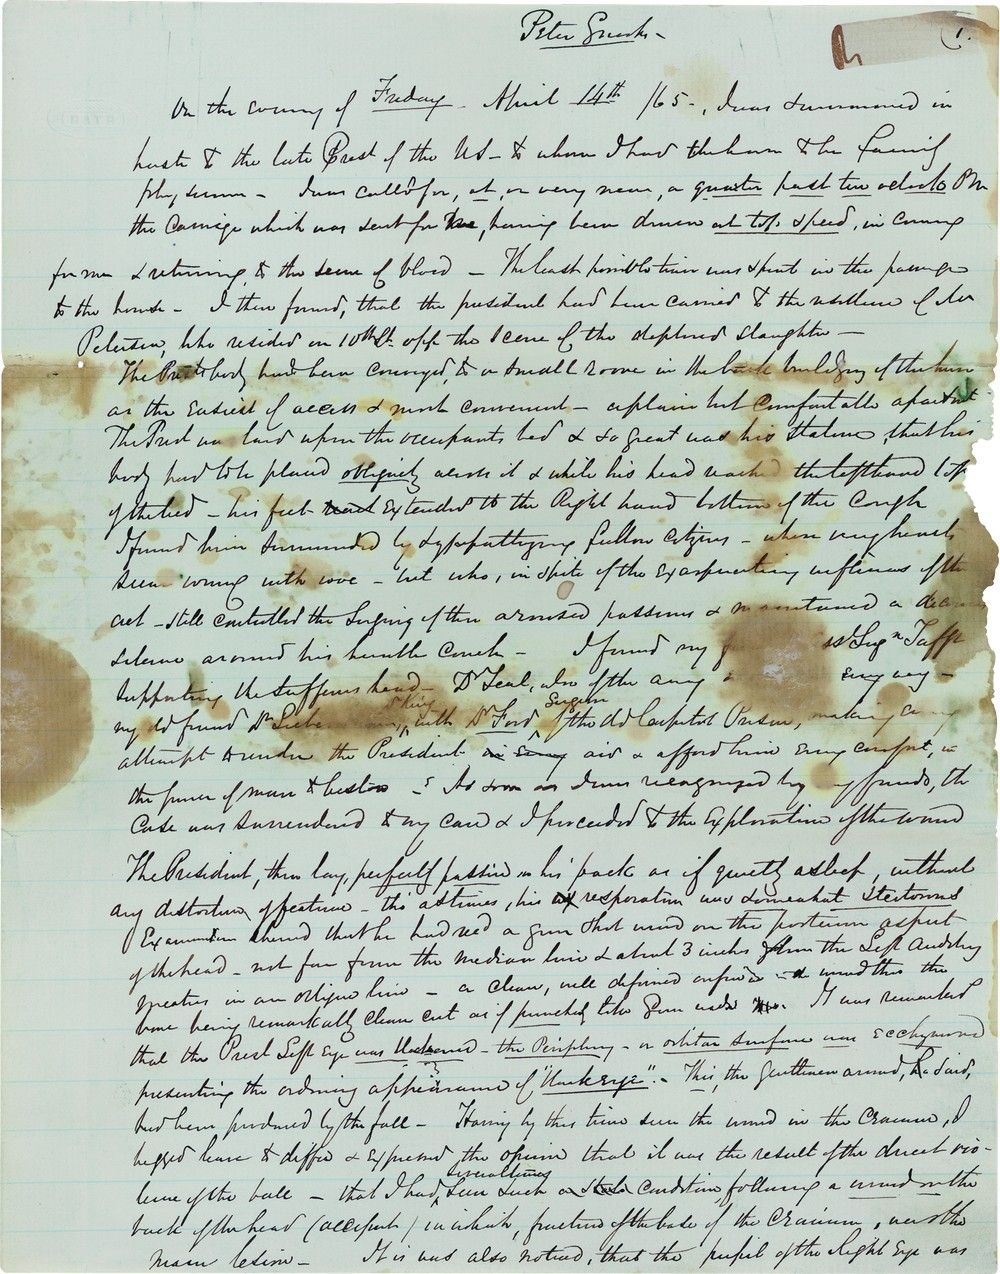 Peter Snooks - (1.
On the evening of Friday - April 14th /65 -, I was summoned in
haste to the late Prest of the US - to whom I had the honor to be family
physician - I was called for, at, or very near, a quarter past ten o'clock PM
the carriage which was sent for me, having been driven at top speed, in coming
for me & returning, to the scene of blood - The least possible time was spent in the passage
to the house - I then found, that the president had been carried to the residence of Mr
Petersen, who resided on 10th St. opp. the scene of the deplored slaughter -
The Prests body had been conveyed, to a small room in the back building of the house
as the easiest of access & most convenient - a plain but comfortable apartmt
The Prest was laid upon the occupants bed & so great was his stature, that his
body had to be placed obliquely across it & while his head reached the left hand top
of the bed - his feet extended to the Right hand bottom of the Couch
I found him surrounded by sympathizing fellow citizens - whose
seem wrung with woe - but who, in spite of the exasperating influences of the
act - still controlled the surging of their aroused passions & maintained a
silence around his humble couch - I found my Surgn Taft
supporting the sufferers head - Dr Leal, also of the army
my old friend Dr Lieber Dr King with Dr Ford Surgeon of the old Capitol Prison, making every
attempt to render the President aid & afford him every comfort, in
the power of man to bestow - As soon as I was recognized by my friends, the
case was surrendered to my care & I proceeded to the Exploration of the wound
The President, then lay, perfectly passive on his back as if quietly asleep, without
any distortion of feature - tho' at times, his respiration was somewhat stertorous
Examination showed that he had recd a gun shot wound on the posterior aspect
of the head - not far from the median line & about 3 inches from the Left Auditory
meatus in an oblique line - a clean, well defined orifice - wound thro the
bone being remarkably clean cut as if punched, like gun wads. It was remarked
that the Prest Left Eye was - the Periphery - or orbitar surface was ecchymosed
presenting the ordinary appearance of "black eye". - This, the gentlemen around, had said,
had been produced by the fall - Having by this time seen the wound in the Cranium, I
begged leave to differ & expressed the opinion that it was the result of the direct vio-
lence of the ball - that I had, several times seen such a condition, following a wound on the
back of the head (occiput) in which, fracture of the base of the Cranium, was the
main lesion - It was also noticed, that the pupil of the Right Eye was